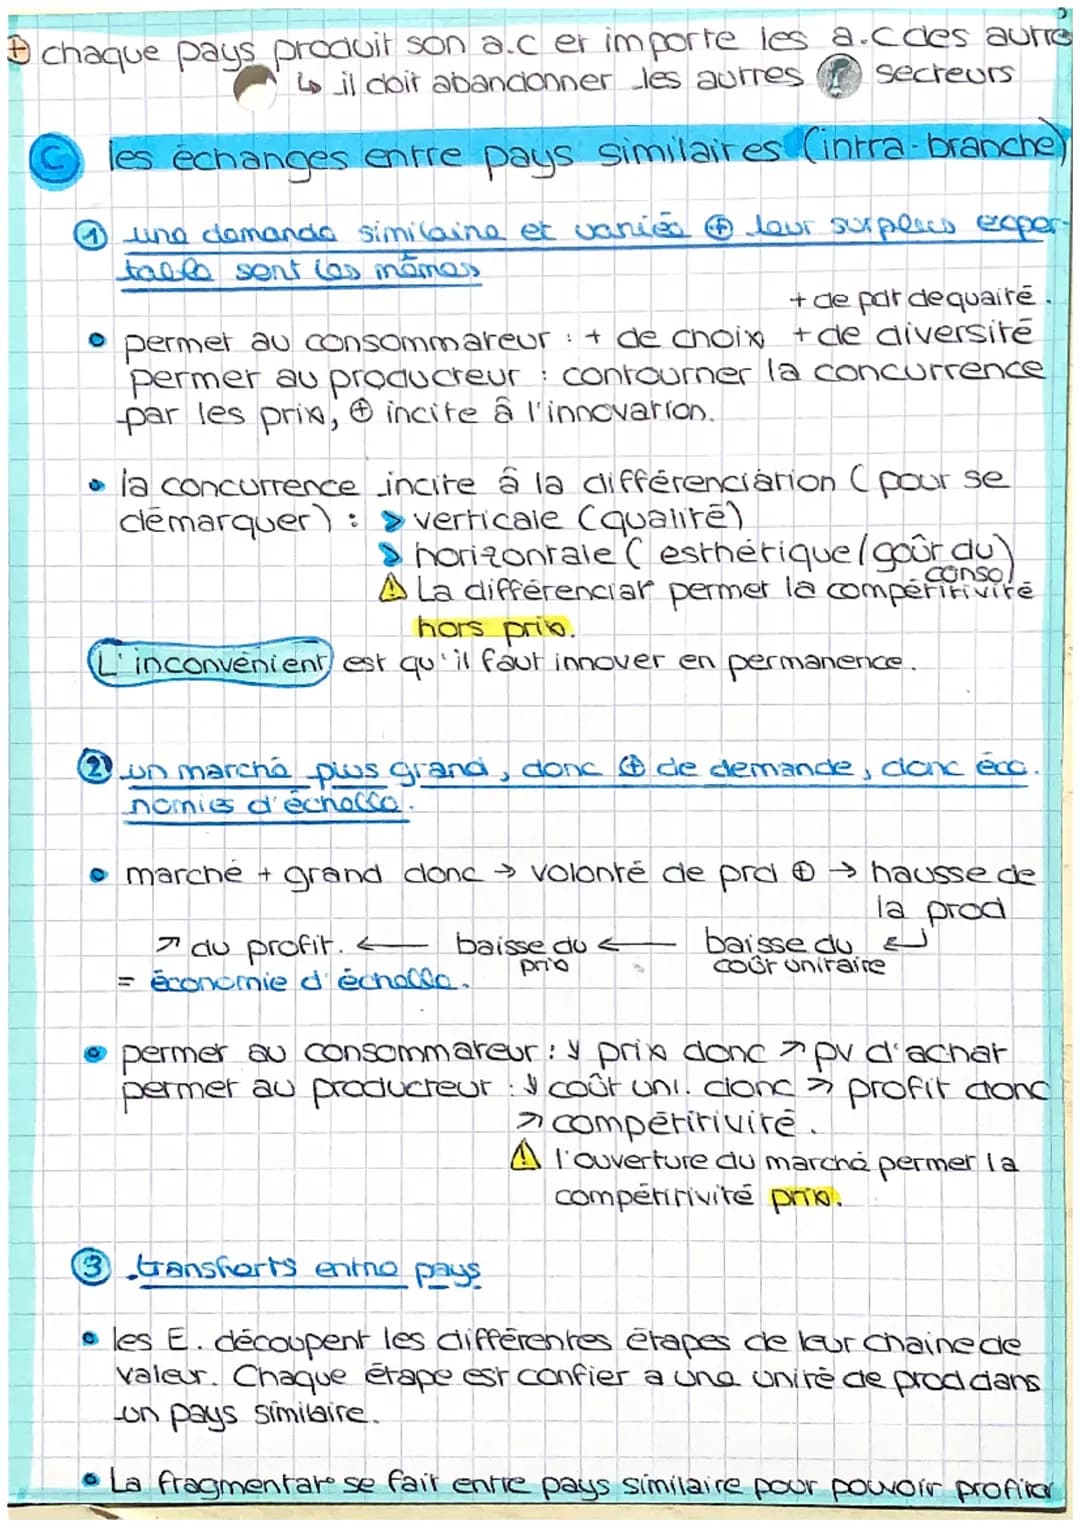 ⊕ chaque pays produit son a.c et importe les a.c des autre
↳ il doit abandonner les autres secteurs
C les échanges entre pays similaires (intra-branche)
1 une demande similaire et variée ⊕ leur surplus expor-
table sont les mêmes
+ de par de quaité.
• permet au consommateur : + de choix + de diversité
permet au producteur : contourner la concurrence
par les prix, ⊕ incite â l'innovation.
• la concurrence incite â la différenciation (pour se
démarquer) : > verticale (qualité)
> horizontale (esthétique/goût du
conso)
⚠ La différenciat° permet la compétitivité
hors prix.
L'inconvénient est qu'il faut innover en permanence.
2 un marché plus grand, donc ⊕ de demande, donc éco-
nomies d'échelle.
• marché + grand donc → volonté de prd ⊕ → hausse de
la prod
↗ du profit. ← baisse du ← baisse du ↵
prix coût unitaire
= économie d'échelle.
• permet au consommateur : ↓ prix donc ↗ pv d'achat
permet au producteur : ↓ coût uni. donc ↗ profit donc
↗ compétitivité.
⚠ l'ouverture du marché permet la
compétitivité prix.
3 transferts entre pays
• les E. découpent les différentes étapes de leur chaine de
valeur. Chaque étape est confier a une unité de prod dans
un pays similaire.
• La fragmentat° se fait entre pays similaire pour pouvoir profiter